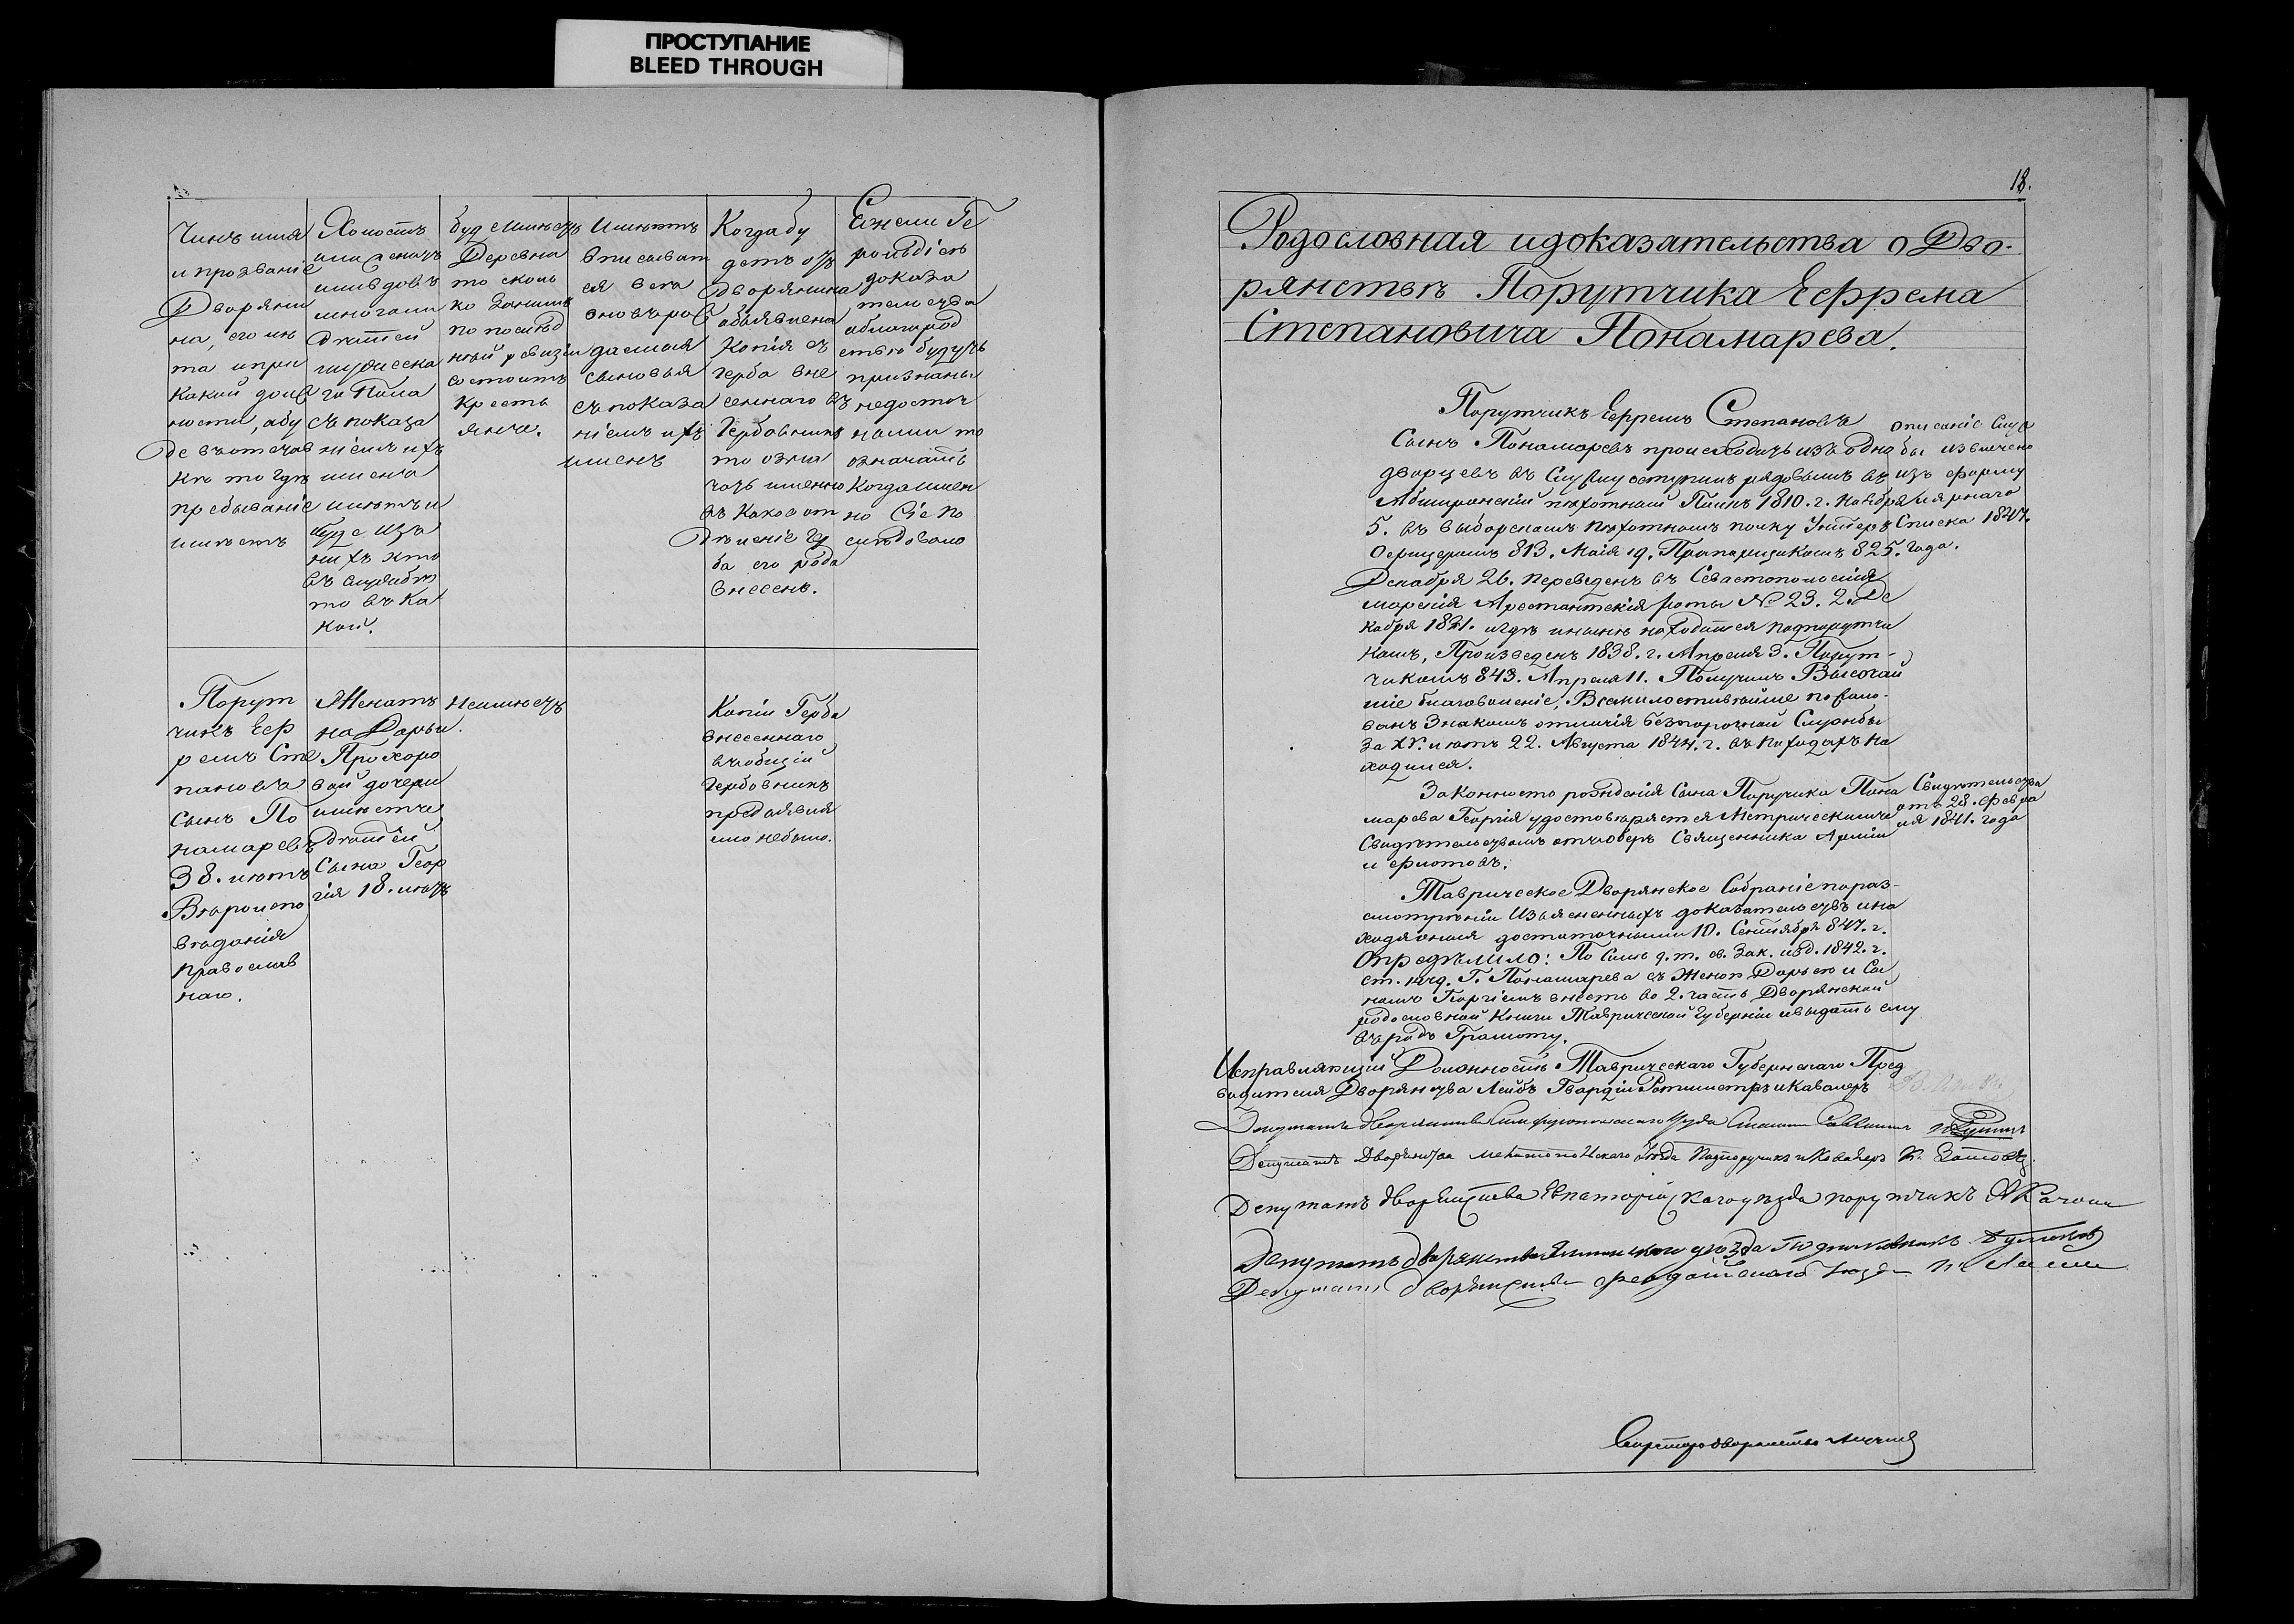 ПРОСТУПАНИЕ
BLEED THROUGH
Чинъ имя
и прозваніе
Дворяни
на, его лѣ
та и при
какой долж
ности, абу
де въ отстав
кѣ то гдѣ
пребываніе
имѣетъ
Холостъ
или женатъ
или вдовъ
много ли
Дѣтей
мужеска
го Пола
съ показа
ніемъ ихъ
имена
лѣтъ и
буде изъ
нихъ кто
въ службѣ
то въ ка
кой.
буде имѣетъ
Деревни
то сколь
ко за нимъ
по послѣд
ней ревизіи
состоитъ
кресть
янъ.
Имѣютъ
вписыват
ся в сга
вновь рож
даемыя
сыновья
съ показа
ніемъ ихъ
именъ
Когда бу
детъ отъ
дворянина
объявлена
Копія съ
герба вне
сеннаго въ
Гербовникъ
то озна
чать именно
въ какое от
дѣленіе Гер
ба его рода
внесенъ.
Ежели Ге
рольдіею
доказа
тельства
о благород
ствѣ будутъ
признаны
недостаточ
ными то
означать
Когда имен
но Сіе по
слѣдовало
Порут
чикъ Ефр
ремъ Сте
пановъ
Сынъ По
намаревъ
38. лѣтъ
Вѣроиспо
вѣданія
Православ
наго.
Женатъ
на Дарьи
Прохоро
вой дочери
имѣетъ
Дѣтей
Сына Геор
гія 18. лѣтъ
Неимѣетъ.
Копіи Герба
внесеннаго
въ общій
Гербовникъ
предъявля
мо небыло.
18.
Родословная и доказательства о Дво-
рянствѣ Порутчика Ефрема
Степановича Понамарева.
Порутчикъ Ефремъ Степановъ
Сынъ Понамаревъ происходитъ изъ одно
дворцевъ въ Службу вступилъ рядовымъ въ
Абширонскій пѣхотный Полкъ 1810. г. Ноября
5. въ Выборскомъ пѣхотномъ полку Унтеръ
Офицеромъ 813. Маія 19. Прапорщикомъ 825.
Декабря 26. переведенъ въ Севастопольскія
морскія Арестантскія роты № 23. 2. Де
кабря 1831. и гдѣ и нынѣ находится подпорутчи
комъ, Произведенъ 1838. г. Апреля 3. Порут-
чикомъ 843. Апреля 11. Получилъ Высочай
шіе благоволеніе, Всемилостивѣйше пожало-
ванъ Знакомъ отличія безпорочной Службы
За XV. лѣтъ 22. Августа 1844. г. въ походахъ на
ходился.
описаніе Служ
бы извлечено
изъ форму
лярнаго
Списка 1847.
года.
Законность рожденія Сына Поручика Пона
марева Георгія удостовѣряется Метрическимъ
Свидѣтельствомъ отъ оберъ Священника Арміи
и флотовъ.
Свидѣтельство
отъ 28. Февра
ля 1841. года
Таврическое Дворянское Собраніе по раз-
смотрѣніи Изъясненныхъ доказательствъ и на
ходя оныя достаточными 10. Сентября 847. г.
Опредѣлило: По Силѣ 9. т. св. Зак. изд. 1842. г.
Г. Понамарева съ Женою Дарьею и Сы
номъ Георгіемъ внесть во 2. часть Дворянской
родословной Книги Таврической Губерніи и выдать ему
въ родъ Грамоту.
Исправляющій Должность Таврическаго Губернскаго Пред
водителя Дворянства Лейбъ Гвардіи Ротмистръ и Кавалеръ
Депутатъ Дворянства Симферопольскаго Уѣзда
Депутатъ Дворянства Мелитопольскаго Уѣзда Подпоручикъ и Кавалеръ
Депутатъ дворянства Евпаторійскаго уѣзда порутчикъ
Депутатъ дворянства уѣзда
Депутатъ дворянства Феодосійскаго Уѣзда
Секретарь дворянства